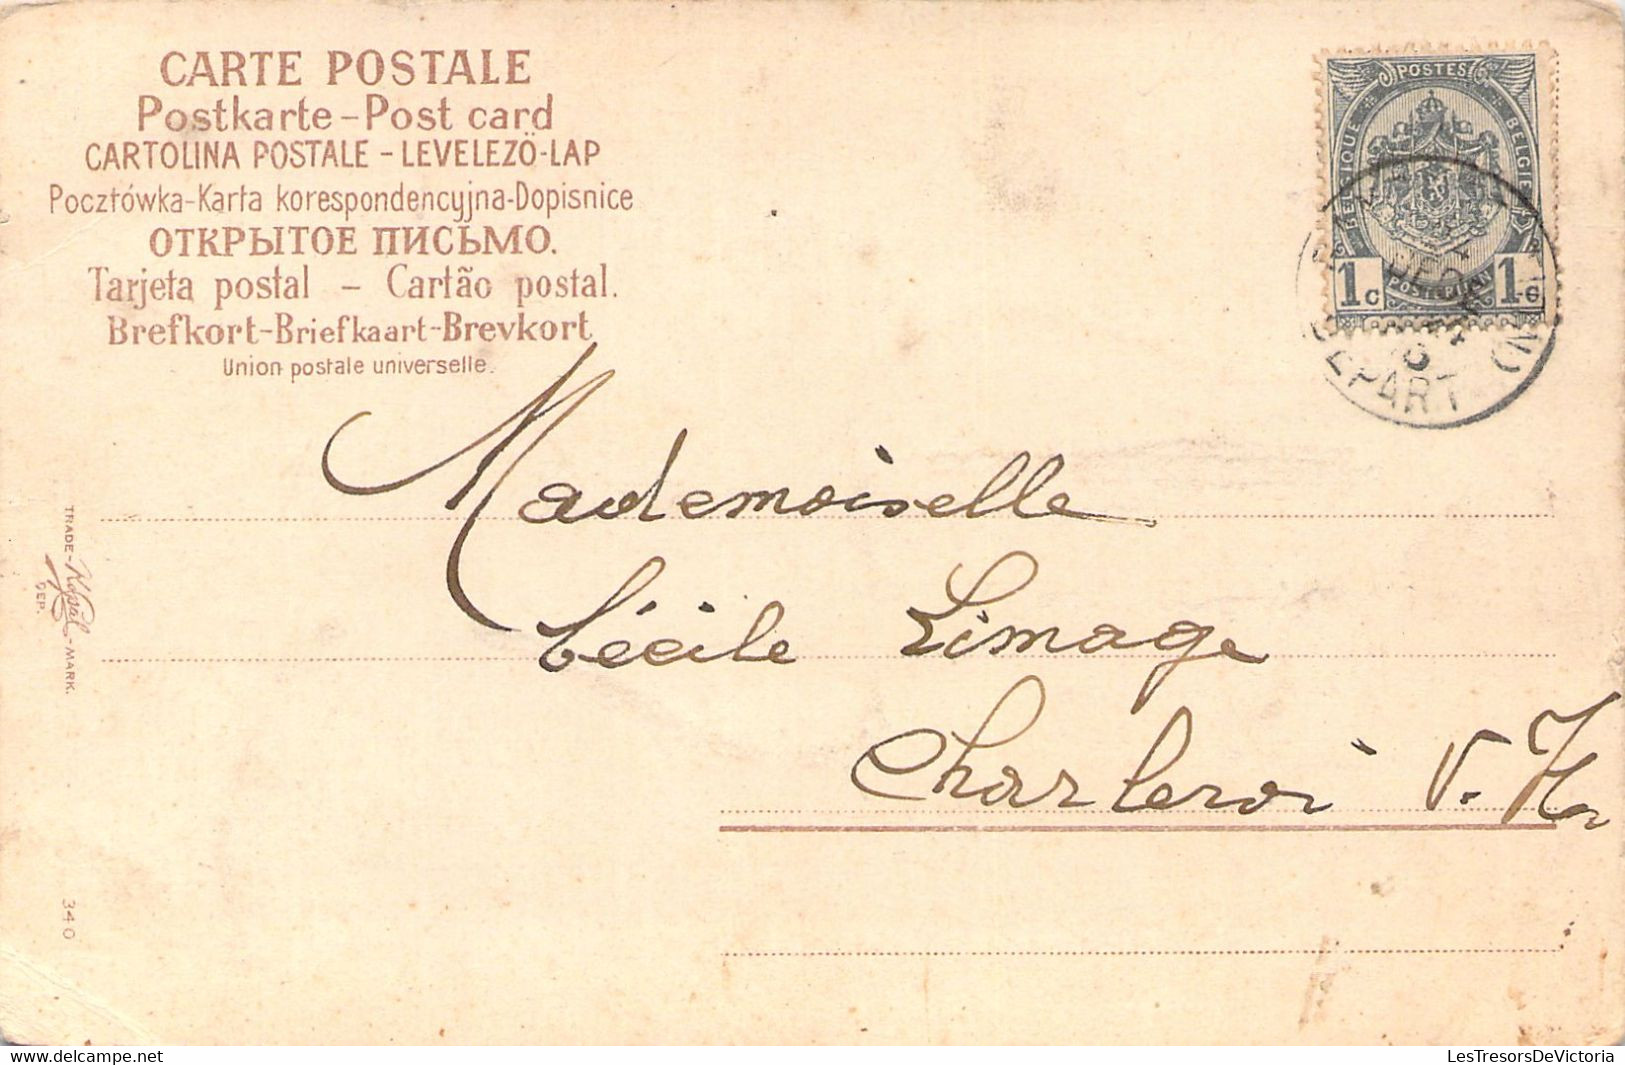 CARTE POSTALE
Postkarte-Post card
CARTOLINA POSTALE - LEVELEZÖ-LAP
Pocztówka-Karta korespondencyjna-Dopisnice
ОТКРЫТОЕ ПИСЬМО.
Tarjeta postal - Cartão postal.
Brefkort-Briefkaart-Brevkort
Union postale universelle.
POSTES
BELGIQUE
BELGIË
1c
1c
EPART
Mademoiselle
Cécile Limage
Charleroi V.H
TRADE-Kopál-MARK.
DEP.
340
LesTresorsDeVictoria
delcampe.net